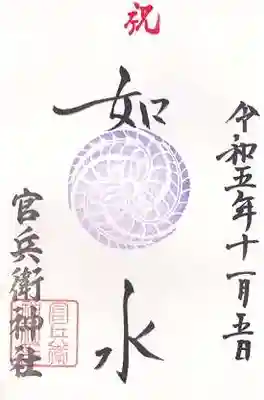 祝
令和五年十一月五日
如水
官兵衛神社
官兵衛